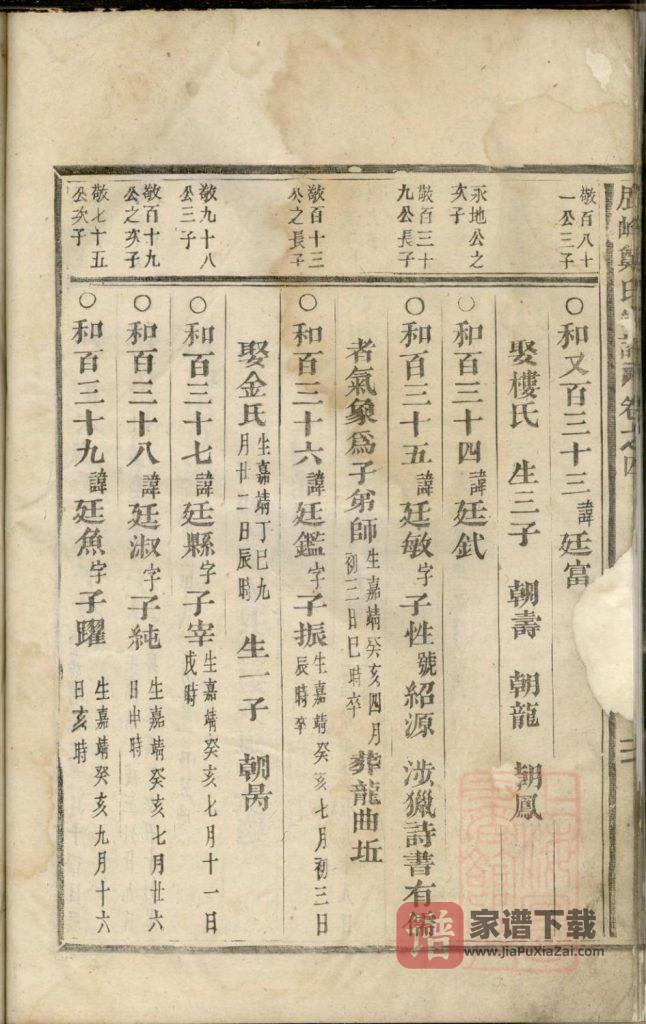 鄭氏
卷之四
敬百八十
一公三子
○和又百三十三諱廷富
娶樓氏 生三子 朝壽 朝龍 朝鳳
永地公之
次子
○和百三十四諱廷鈛
敬百三十
九公長子
○和百三十五諱廷敏字子性號紹源 涉獵詩書有儒
者氣象爲子弟師生嘉靖癸亥四月初三日巳時卒葬龍曲坵
敬百十三
公之長子
○和百三十六諱廷鑑字子振生嘉靖癸亥七月初三日辰時卒
娶金氏生嘉靖丁巳九月廿二日辰時 生一子 朝昺
敬九十八
公三子
○和百三十七諱廷縣字子宰生嘉靖癸亥七月十一日戌時
敬百十九
公之次子
○和百三十八諱廷淑字子純生嘉靖癸亥七月廿六日申時
敬七十五
公次子
○和百三十九諱廷魚字子躍生嘉靖癸亥九月十六日亥時
譜 家谱下载
www.jiaPuXiaZai.com